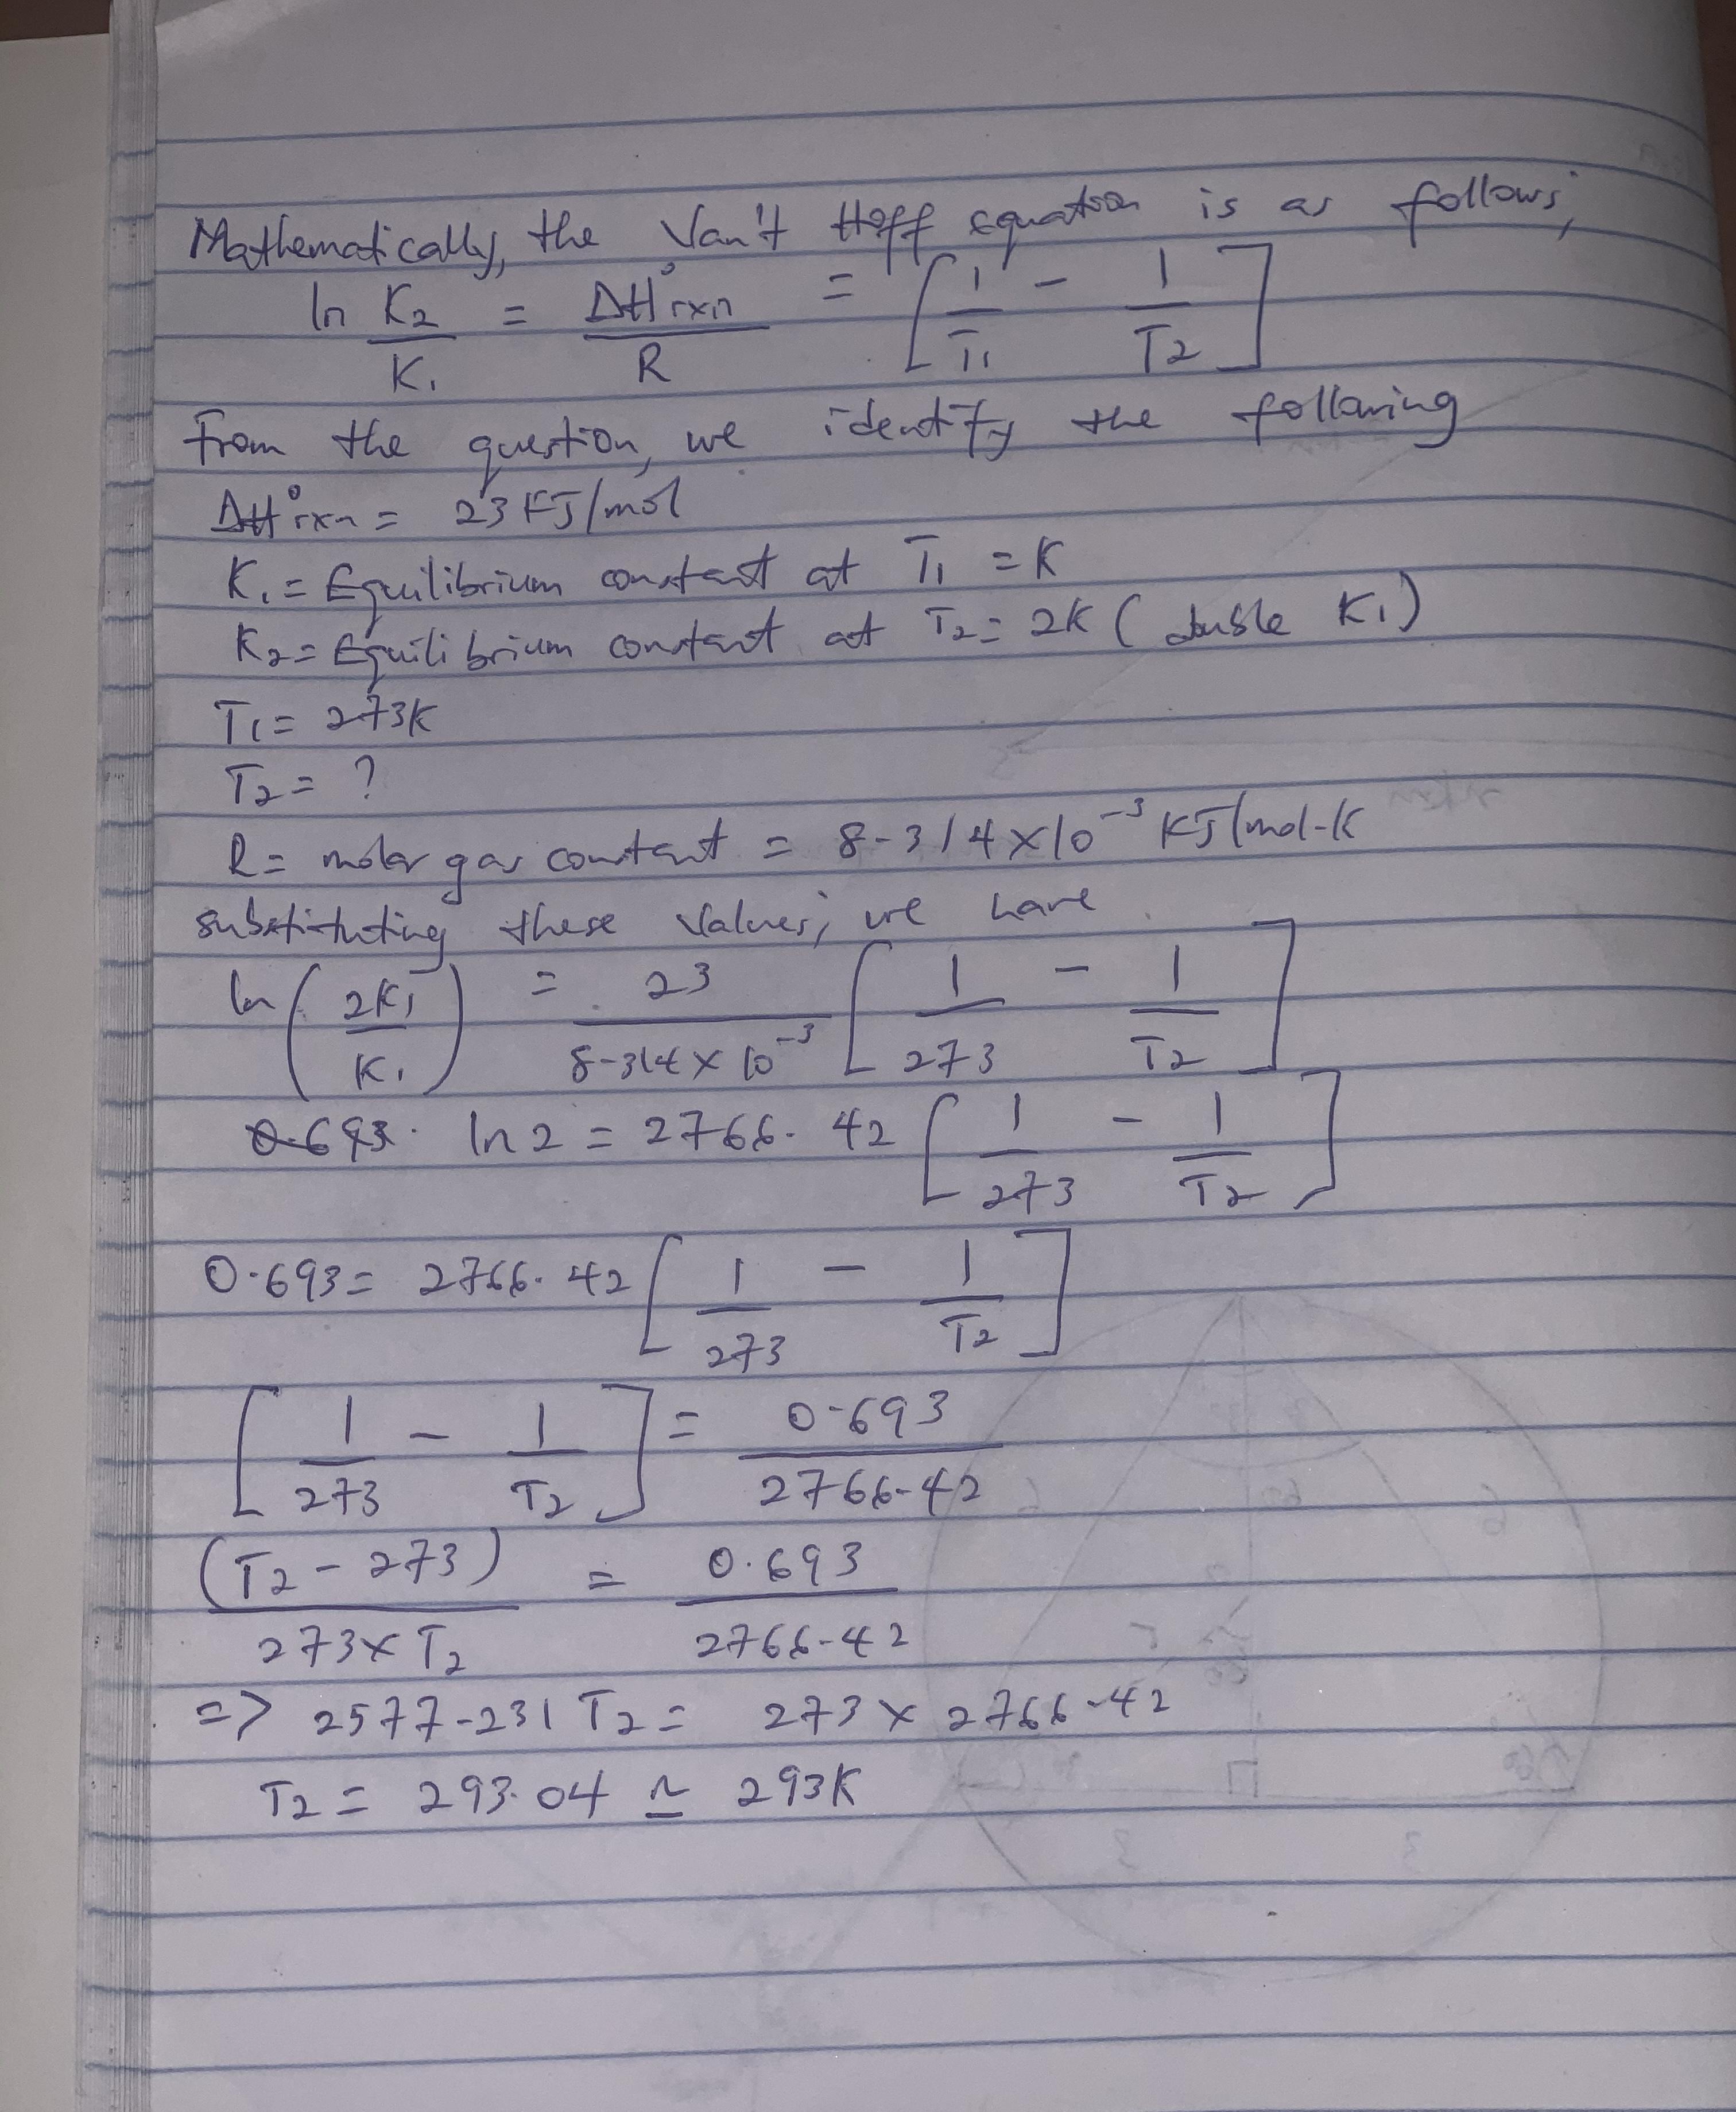 Mathematically, the Van't Hoff equation is as follows;
ln K₂/K₁ = ΔH°rxn/R = [1/T₁ - 1/T₂]
From the question, we identify the following
ΔH°rxn = 23 KJ/mol
K₁ = Equilibrium constant at T₁ = K
K₂ = Equilibrium constant at T₂ = 2K (double K₁)
T₁ = 273K
T₂ = ?
R = molar gas constant = 8-314 x 10⁻³ KJ/mol-K
substituting these values, we have
ln (2K₁/K₁) = 23/8-314 x 10⁻³ [1/273 - 1/T₂]
ln 2 = 2766.42 [1/273 - 1/T₂]
0.693 = 2766.42 [1/273 - 1/T₂]
[1/273 - 1/T₂] = 0-693/2766-42
(T₂ - 273)/273 x T₂ = 0.693/2766-42
=> 2577-231 T₂ = 273 x 2766-42
T₂ = 293.04 ≃ 293K